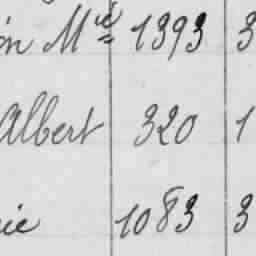 on Mie 1393 3
Albert 320 1
cie 1083 3